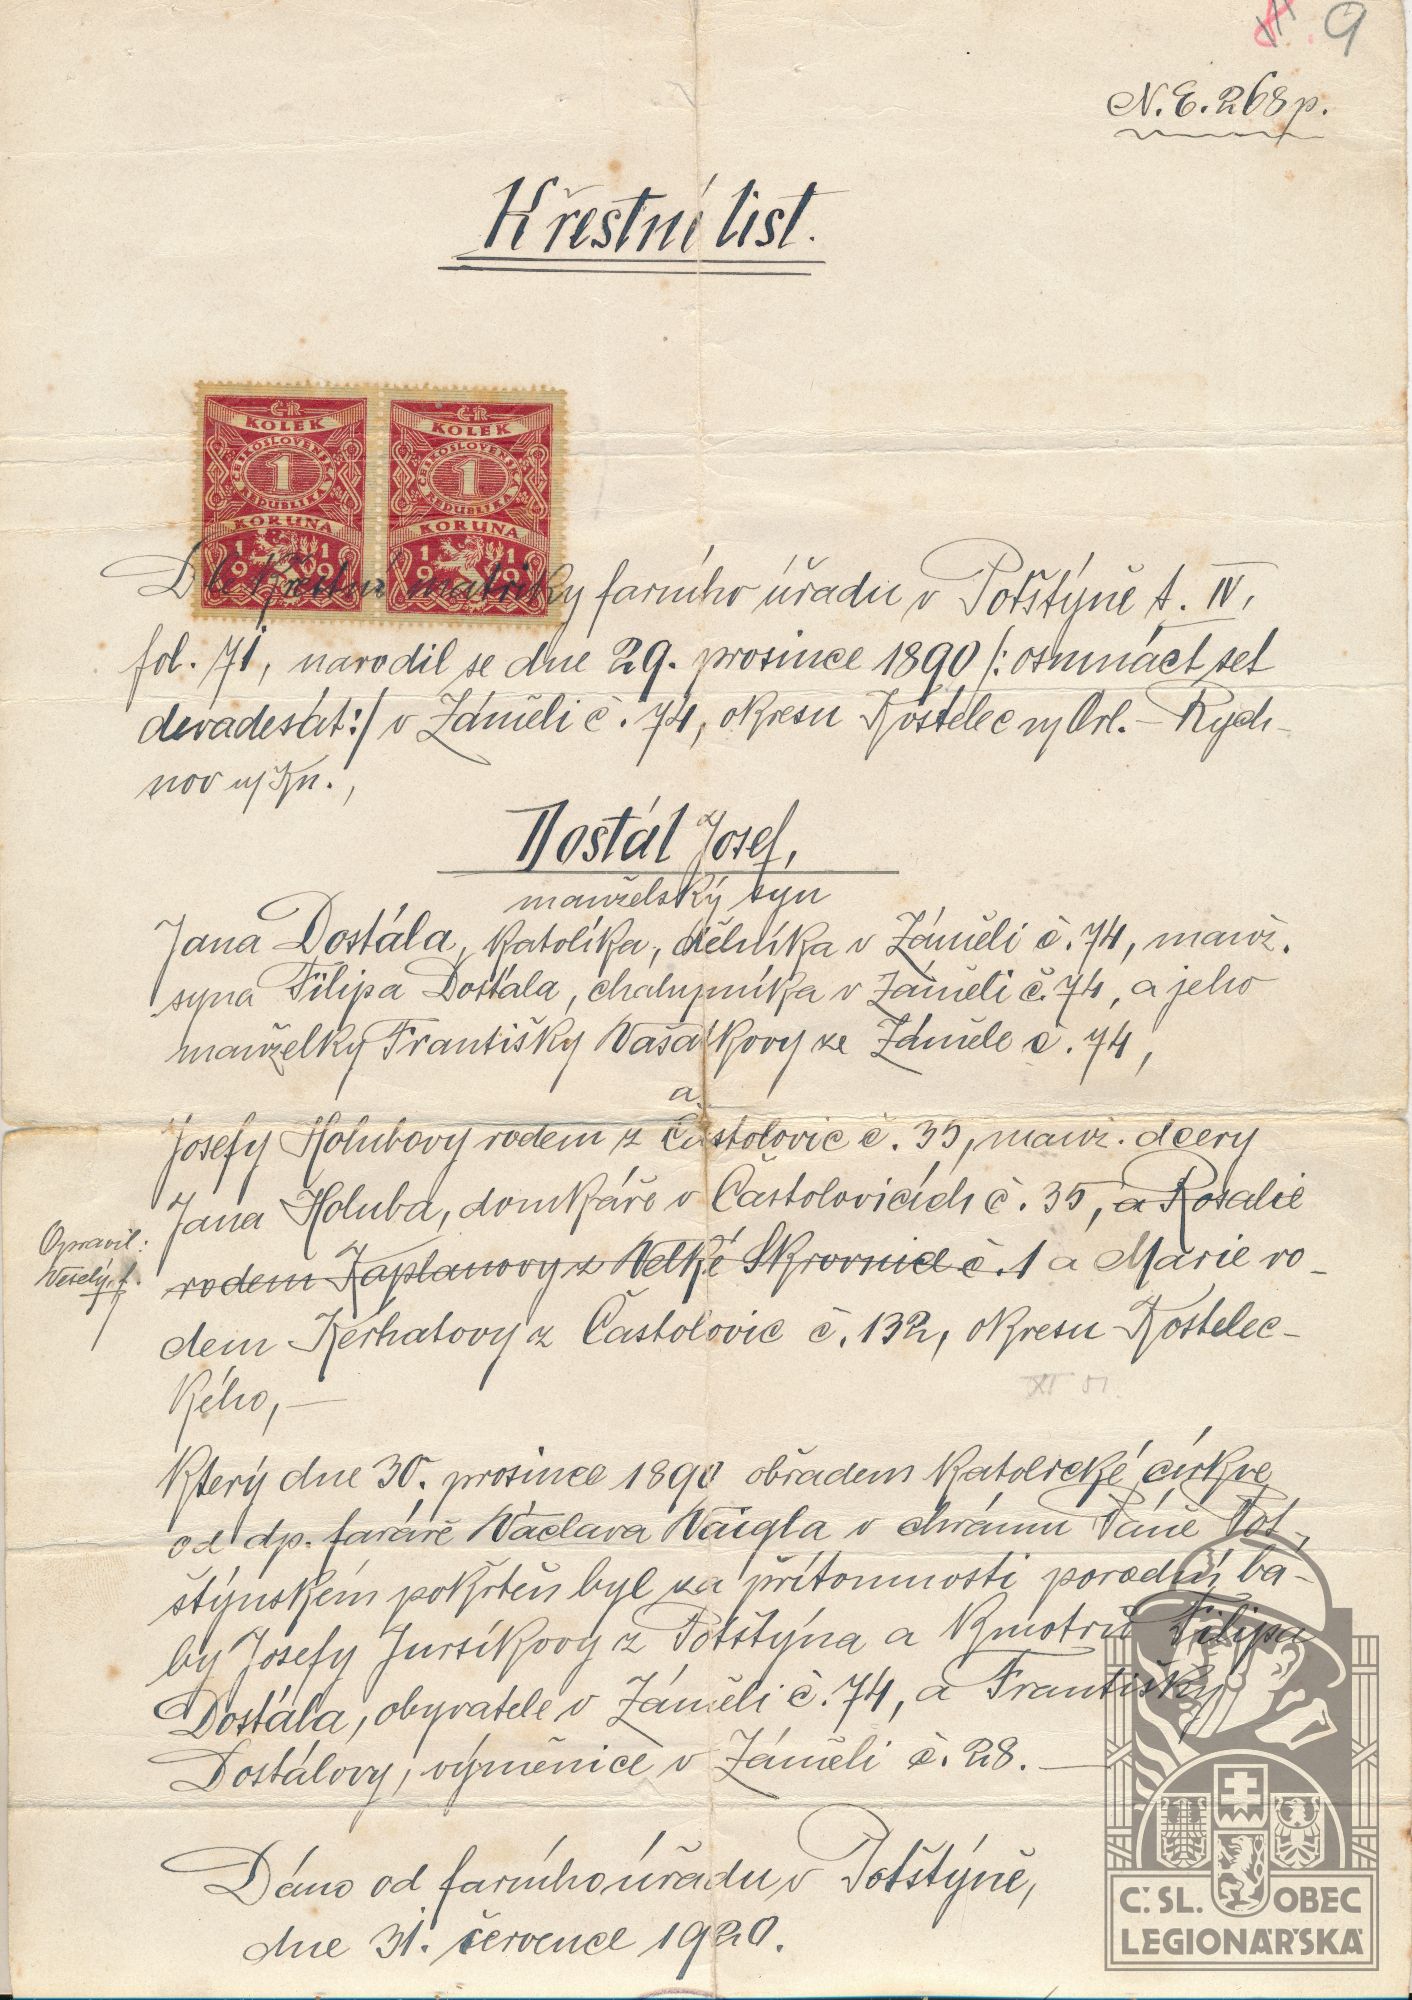 9
N. E. 268 p.
Křestní list.
ČR ČR
KOLEK KOLEK
ČESKOSLOVENSKÁ ČESKOSLOVENSKÁ
1 1
REPUBLIKA REPUBLIKA
KORUNA KORUNA
1919 1919
Dle křestní matriky farního úřadu v Potštýně t. IV,
fol. 71, narodil se dne 29. prosince 1890 /: osmnáct set
devadesát:/ v Záměli č. 74, okresu Kostelec n/Orl. – Rych-
nov n/Kn.,
Dostál Josef,
manželský syn
Jana Dostála, katolíka, dělníka v Záměli č. 74, manž.
syna Filipa Dostála, chalupníka v Záměli č. 74, a jeho
manželky Františky Vašátkovy ze Záměle č. 74,
a
Josefy Holubovy rodem z Častolovic č. 35, manž. dcery
Jana Holuba, domkáře v Častolovicích č. 35, a Rosalie
Opravil:
Veselý f.
rodem Kaplanovy z Velké Skrovnice č. 1 a Marie ro-
dem Kerhatovy z Častolovic č. 132, okresu Kostelec-
kého, —
který dne 30. prosince 1890 obřadem katolické církve
od dp. faráře Václava Vaigla v chrámu Páně Pot-
štýnském pokřtěn byl za přítomnosti porodní bá-
by Josefy Jursíkovy z Potštýna a kmotrů Filipa
Dostála, obyvatele v Záměli č. 74, a Františky
Dostálovy, výměnice v Záměli č. 28. —
Dáno od farního úřadu v Potštýně,
dne 31. července 1920.
Č. SL. OBEC
LEGIONÁŘSKÁ